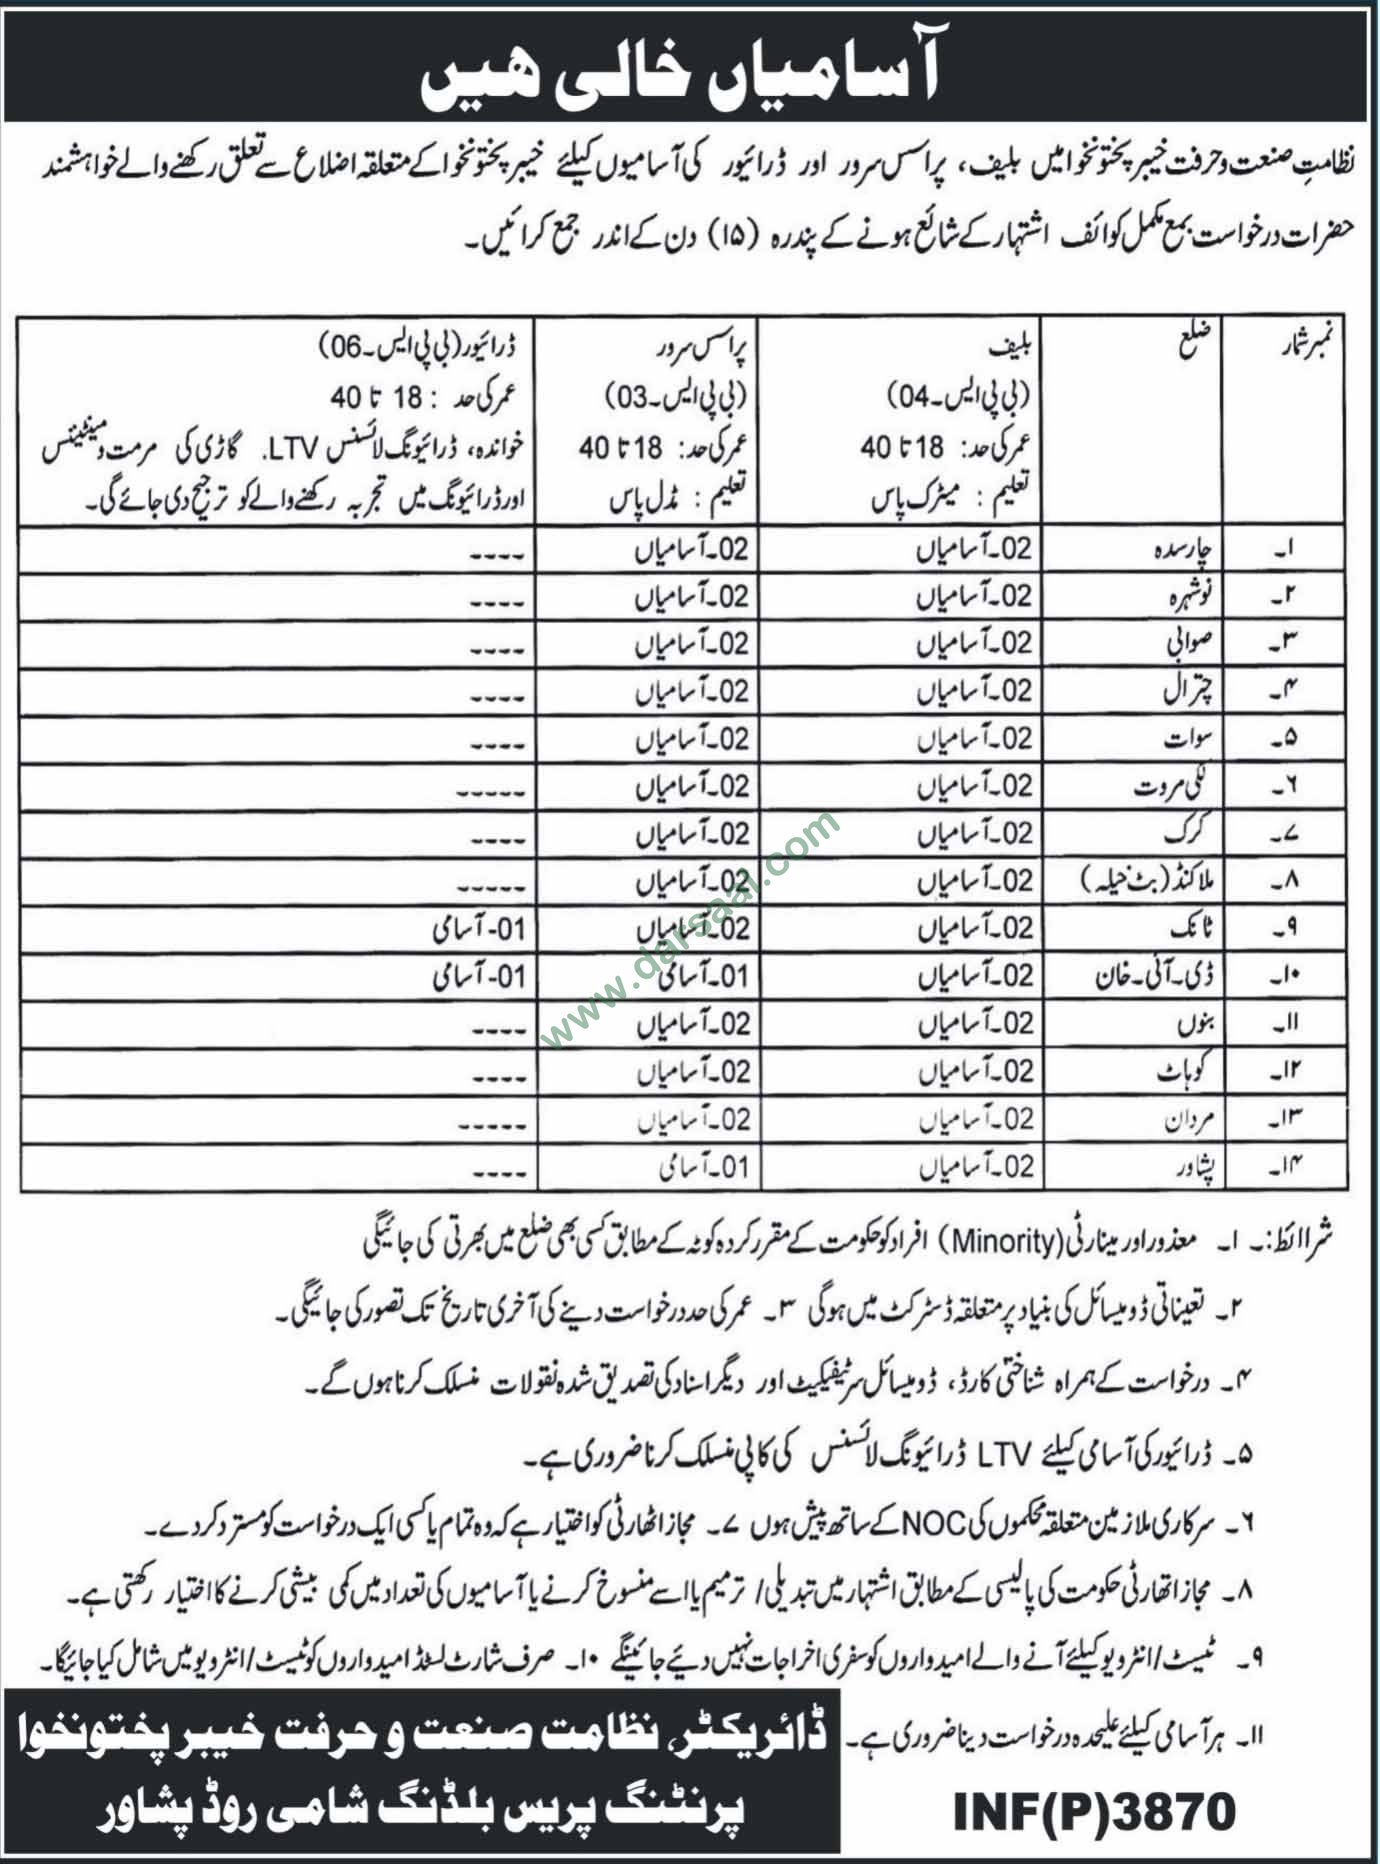 آسامیاں خالی ھیں
نظامتِ صنعت و حرفت خیبر پختونخوا میں بلیف، پراسس سرور اور ڈرائیور کی آسامیوں کیلئے خیبر پختونخوا کے متعلقہ اضلاع سے تعلق رکھنے والے خواہشمند
حضرات درخواست بمع مکمل کوائف اشتہار کے شائع ہونے کے پندرہ (۱۵) دن کے اندر جمع کرائیں۔
نمبر شمار ضلع بلیف پراسس سرور ڈرائیور (بی پی ایس۔06)
(بی پی ایس۔04) (بی پی ایس۔03) عمر کی حد : 18 تا 40
عمر کی حد: 18 تا 40 عمر کی حد: 18 تا 40 خواندہ، ڈرائیونگ لائسنس LTV. گاڑی کی مرمت و مینٹیننس
تعلیم : میٹرک پاس تعلیم : مڈل پاس اور ڈرائیونگ میں تجربہ رکھنے والے کو ترجیح دی جائے گی۔
۱۔ چارسدہ 02۔آسامیاں 02۔آسامیاں ----
۲۔ نوشہرہ 02۔آسامیاں 02۔آسامیاں ----
۳۔ صوابی 02۔آسامیاں 02۔آسامیاں ----
۴۔ چترال 02۔آسامیاں 02۔آسامیاں ----
۵۔ سوات 02۔آسامیاں 02۔آسامیاں ----
۶۔ لکی مروت 02۔آسامیاں 02۔آسامیاں -----
۷۔ کرک 02۔آسامیاں 02۔آسامیاں ----
۸۔ ملاکنڈ (بٹ خیلہ) 02۔آسامیاں 02۔آسامیاں -----
۹۔ ٹانک 02۔آسامیاں 02۔آسامیاں 01-آسامی
۱۰۔ ڈی۔آئی۔خان 02۔آسامیاں 01۔آسامی 01-آسامی
۱۱۔ بنوں 02۔آسامیاں 02۔آسامیاں ----
۱۲۔ کوہاٹ 02۔آسامیاں 02۔آسامیاں ----
۱۳۔ مردان 02۔آسامیاں 02۔آسامیاں -----
۱۴۔ پشاور 02۔آسامیاں 01۔آسامی ----
www.darsaal.com
شرائط:۔ ۱۔ معذور اور مینارٹی (Minority) افراد کو حکومت کے مقرر کردہ کوٹہ کے مطابق کسی بھی ضلع میں بھرتی کی جائیگی
۲۔ تعیناتی ڈومیسائل کی بنیاد پر متعلقہ ڈسٹرکٹ میں ہوگی ۳۔ عمر کی حد درخواست دینے کی آخری تاریخ تک تصور کی جائیگی۔
۴۔ درخواست کے ہمراہ شناختی کارڈ، ڈومیسائل سرٹیفکیٹ اور دیگر اسناد کی تصدیق شدہ نقولات منسلک کرنا ہوں گے۔
۵۔ ڈرائیور کی آسامی کیلئے LTV ڈرائیونگ لائسنس کی کاپی منسلک کرنا ضروری ہے۔
۶۔ سرکاری ملازمین متعلقہ محکموں کی NOC کے ساتھ پیش ہوں ۷۔ مجاز اتھارٹی کو اختیار ہے کہ وہ تمام یا کسی ایک درخواست کو مسترد کردے۔
۸۔ مجاز اتھارٹی حکومت کی پالیسی کے مطابق اشتہار میں تبدیلی / ترمیم یا اسے منسوخ کرنے یا آسامیوں کی تعداد میں کمی بیشی کرنے کا اختیار رکھتی ہے۔
۹۔ ٹیسٹ / انٹرویو کیلئے آنے والے امیدواروں کو سفری اخراجات نہیں دیئے جائینگے ۱۰۔ صرف شارٹ لسٹڈ امیدواروں کو ٹیسٹ / انٹرویو میں شامل کیا جائیگا۔
۱۱۔ ہر آسامی کیلئے علیحدہ درخواست دینا ضروری ہے۔
ڈائریکٹر، نظامت صنعت و حرفت خیبر پختونخوا
پرنٹنگ پریس بلڈنگ شامی روڈ پشاور
INF(P)3870